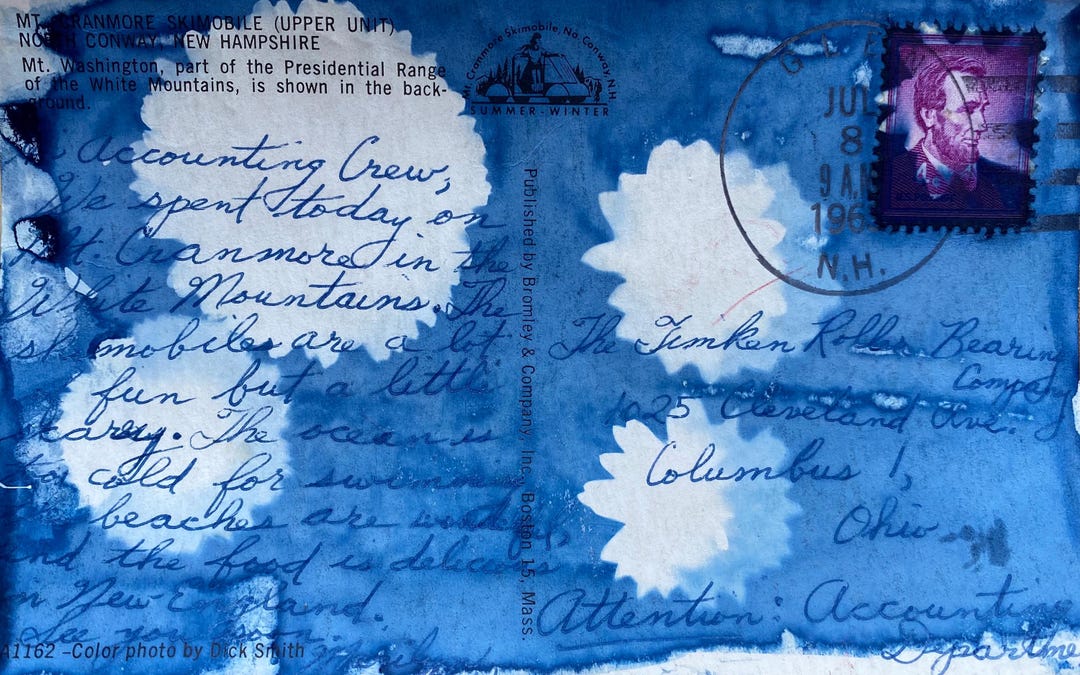 MT. CRANMORE SKIMOBILE (UPPER UNIT)
NORTH CONWAY, NEW HAMPSHIRE
Mt. Washington, part of the Presidential Range
of the White Mountains, is shown in the back-
ground.
Mt. Cranmore Skimobile, No. Conway, N.H.
SUMMER - WINTER
Hi Accounting Crew,
We spent today on
Mt. Cranmore in the
White Mountains. The
skimobiles are a lot
fun but a little
scarey. The ocean is
too cold for swimming
beaches are wonderful,
and the food is delicious
in New England.
See you soon.
Marilyn
A1162 - Color photo by Dick Smith
Published by Bromley & Company, Inc., Boston 15, Mass.
JUL
8
9 AM
196
N.H.
The Timken Roller Bearing
Company
1025 Cleveland Ave.
Columbus 1,
Ohio
Attention: Accounting
Department